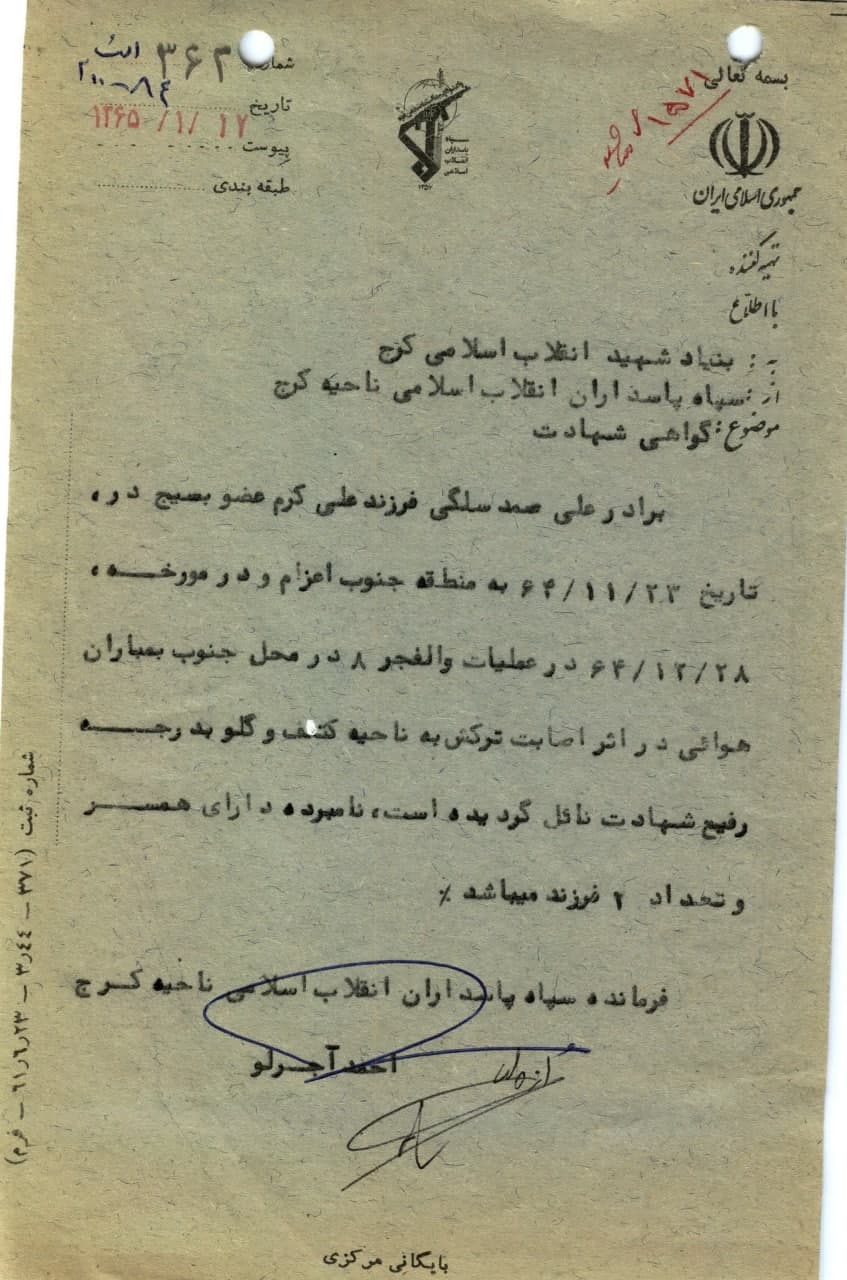 بسمه تعالی
جمهوری اسلامی ایران
۱۵۷۱
سپاه
پاسداران
انقلاب
اسلامی
۱۳۵۷
شماره ۳۶۲ الف
تاریخ ۱۳۶۵/۱/۱۷
پیوست
طبقه بندی
تهیه کننده
با اطلاع
به : بنیاد شهید انقلاب اسلامی کرج
از : سپاه پاسداران انقلاب اسلامی ناحیه کرج
موضوع : گواهی شهادت
برادر علی صمد سلگی فرزند علی کرم عضو بسیج در،
تاریخ ۶۴/۱۱/۲۳ به منطقه جنوب اعزام و در مورخه،
۶۴/۱۲/۲۸ در عملیات والفجر ۸ در محل جنوب بمباران
هوائی در اثر اصابت ترکش به ناحیه کتف و گلو بدرجه
رفیع شهادت نائل گردیده است، نامبرده دارای همسر
و تعداد ۲ فرزند میباشد ٪
فرمانده سپاه پاسداران انقلاب اسلامی ناحیه کرج
احمد آجرلو
شماره ثبت (۳۷۱ – ۳٫۴۴ – ۶۱٫۶٫۲۳ – فرم)
بایگانی مرکزی